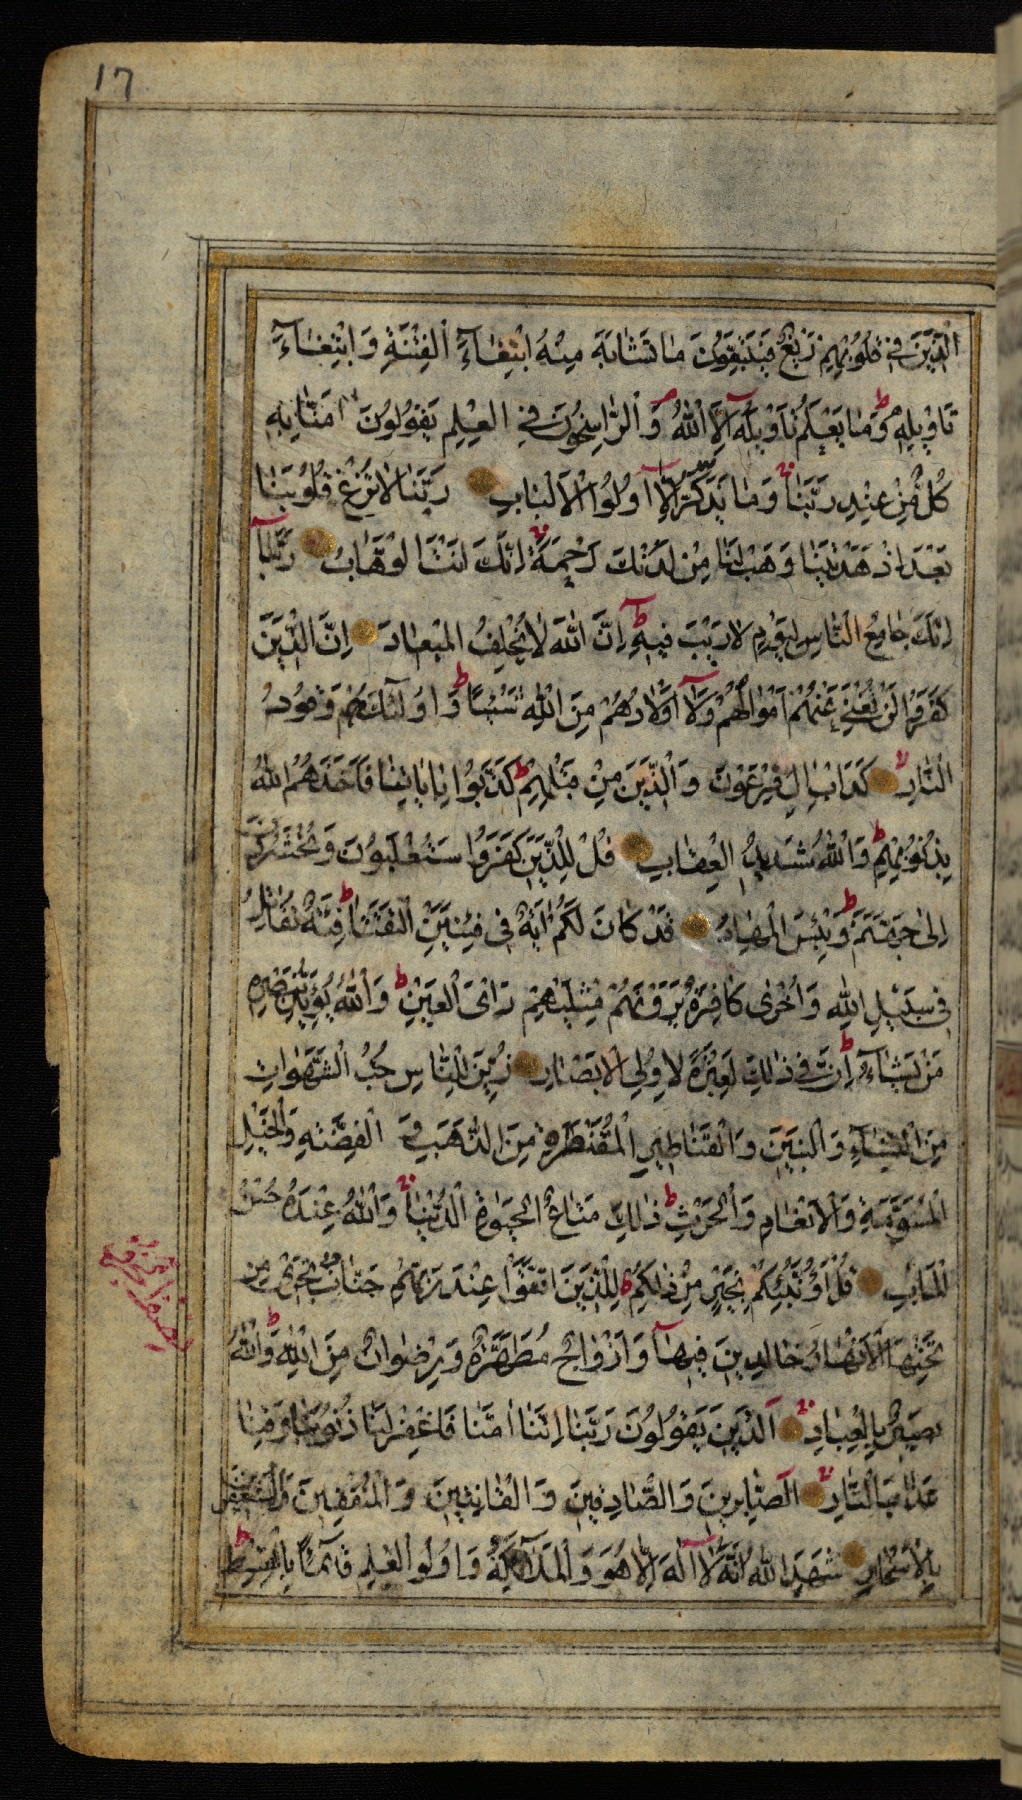 17
الَّذِينَ فِي قُلُوبِهِمْ زَيْغٌ فَيَتَّبِعُونَ مَا تَشَابَهَ مِنْهُ ابْتِغَاءَ الْفِتْنَةِ وَابْتِغَاءَ
تَأْوِيلِهِ ط وَمَا يَعْلَمُ تَأْوِيلَهُ إِلَّا اللَّهُ م وَالرَّاسِخُونَ فِي الْعِلْمِ يَقُولُونَ آمَنَّا بِهِ
كُلٌّ مِنْ عِنْدِ رَبِّنَا وَمَا يَذَّكَّرُ إِلَّا أُولُوا الْأَلْبَابِ رَبَّنَا لَا تُزِغْ قُلُوبَنَا
بَعْدَ إِذْ هَدَيْتَنَا وَهَبْ لَنَا مِنْ لَدُنْكَ رَحْمَةً إِنَّكَ أَنْتَ الْوَهَّابُ رَبَّنَا
إِنَّكَ جَامِعُ النَّاسِ لِيَوْمٍ لَا رَيْبَ فِيهِ ط إِنَّ اللَّهَ لَا يُخْلِفُ الْمِيعَادَ إِنَّ الَّذِينَ
كَفَرُوا لَنْ تُغْنِيَ عَنْهُمْ أَمْوَالُهُمْ وَلَا أَوْلَادُهُمْ مِنَ اللَّهِ شَيْئًا ط وَأُولَئِكَ هُمْ وَقُودُ
النَّارِ كَدَأْبِ آلِ فِرْعَوْنَ وَالَّذِينَ مِنْ قَبْلِهِمْ ط كَذَّبُوا بِآيَاتِنَا فَأَخَذَهُمُ اللَّهُ
بِذُنُوبِهِمْ ط وَاللَّهُ شَدِيدُ الْعِقَابِ قُلْ لِلَّذِينَ كَفَرُوا سَتُغْلَبُونَ وَتُحْشَرُونَ
إِلَى جَهَنَّمَ ط وَبِئْسَ الْمِهَادُ قَدْ كَانَ لَكُمْ آيَةٌ فِي فِئَتَيْنِ الْتَقَتَا ط فِئَةٌ تُقَاتِلُ
فِي سَبِيلِ اللَّهِ وَأُخْرَى كَافِرَةٌ يَرَوْنَهُمْ مِثْلَيْهِمْ رَأْيَ الْعَيْنِ ط وَاللَّهُ يُؤَيِّدُ بِنَصْرِهِ
مَنْ يَشَاءُ ط إِنَّ فِي ذَلِكَ لَعِبْرَةً لِأُولِي الْأَبْصَارِ زُيِّنَ لِلنَّاسِ حُبُّ الشَّهَوَاتِ
مِنَ النِّسَاءِ وَالْبَنِينَ وَالْقَنَاطِيرِ الْمُقَنْطَرَةِ مِنَ الذَّهَبِ وَالْفِضَّةِ وَالْخَيْلِ
الْمُسَوَّمَةِ وَالْأَنْعَامِ وَالْحَرْثِ ط ذَلِكَ مَتَاعُ الْحَيَوةِ الدُّنْيَا وَاللَّهُ عِنْدَهُ حُسْنُ
الْمَآبِ قُلْ أَؤُنَبِّئُكُمْ بِخَيْرٍ مِنْ ذَلِكُمْ ط لِلَّذِينَ اتَّقَوْا عِنْدَ رَبِّهِمْ جَنَّاتٌ تَجْرِي مِنْ
تَحْتِهَا الْأَنْهَارُ خَالِدِينَ فِيهَا وَأَزْوَاجٌ مُطَهَّرَةٌ وَرِضْوَانٌ مِنَ اللَّهِ ط وَاللَّهُ
بَصِيرٌ بِالْعِبَادِ الَّذِينَ يَقُولُونَ رَبَّنَا إِنَّنَا آمَنَّا فَاغْفِرْ لَنَا ذُنُوبَنَا وَقِنَا
عَذَابَ النَّارِ الصَّابِرِينَ وَالصَّادِقِينَ وَالْقَانِتِينَ وَالْمُنْفِقِينَ وَالْمُسْتَغْفِرِينَ
بِالْأَسْحَارِ شَهِدَ اللَّهُ أَنَّهُ لَا إِلَهَ إِلَّا هُوَ وَالْمَلَائِكَةُ وَأُولُو الْعِلْمِ قَائِمًا بِالْقِسْطِ ط